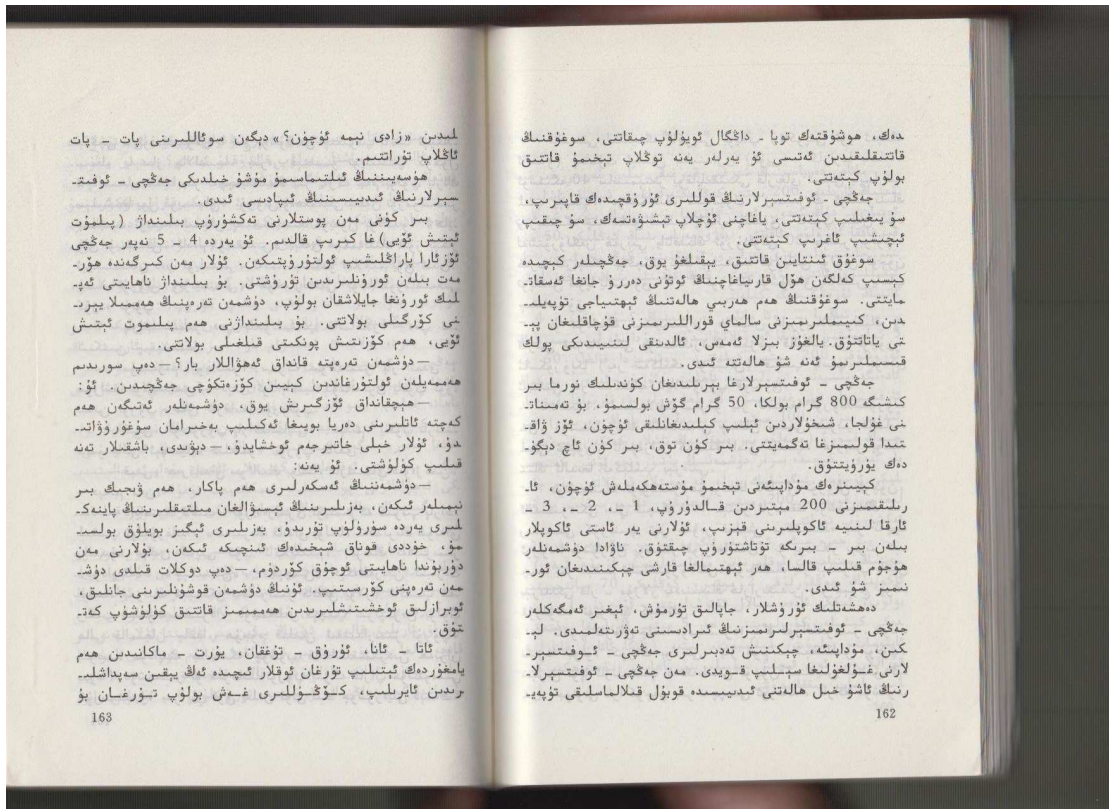 ىدەك، ھوشۇقتەك توپا - داڭگال ئويۇلۇپ چىقاتتى، سوغۇقنىڭ
قاتتىقلىقىدىن ئەتىسى ئۇ يەرلەر يەنە توڭلاپ تېخىمۇ قاتتىق
بولۇپ كېتەتتى.
جەڭچى - ئوفىتسېرلارنىڭ قوللىرى ئۇرۇقچىدەك قاپىرىپ،
سۇ يىغىلىپ كېتەتتى، ياغاچنى ئۇچلاپ تېشىۋەتسەك، سۇ چىقىپ
ئېچىشىپ ئاغرىپ كېتەتتى.
سوغۇق ئىنتايىن قاتتىق، يېقىلغۇ يوق، جەڭچىلەر كېچىدە
كېسىپ كەلگەن ھۆل قارىياغاچنىڭ ئوتۇنى دەررۇ جانغا ئەسقاتـ
مايتتى. سوغۇقنىڭ ھەم ھەربىي ھالەتنىڭ ئېھتىياجى تۈپەيلىـ
دىن، كىيىملىرىمىزنى سالماي قوراللىرىمىزنى قۇچاقلىغان پېـ
تى ياتاتتۇق. يالغۇز بىزلا ئەمەس، ئالدىنقى لىنىيىدىكى پولك
قىسىملىرىمۇ ئەنە شۇ ھالەتتە ئىدى.
جەڭچى - ئوفىتسېرلارغا بېرىلىدىغان كۈندىلىك نورما بىر
كىشىگە 800 گرام بولكا، 50 گرام گۆش بولسىمۇ، بۇ تەمىناتـ
نى غۇلجا، شىخۇلاردىن ئېلىپ كېلىدىغانلىقى ئۈچۈن، ئۆز ۋاقـ
تىدا قولىمىزغا تەگمەيتتى. بىر كۈن توق، بىر كۈن ئاچ دېگۈـ
دەك يۈرۈيتتۇق.
كېيىنرەك مۇداپىئەنى تېخىمۇ مۇستەھكەملەش ئۈچۈن، ئاـ
رىلىقىمىزنى 200 مېتىردىن قالدۇرۇپ، 1 -، 2 -، 3 -
ئارقا لىنىيە ئاكوپلىرىنى قېزىپ، ئۇلارنى يەر ئاستى ئاكوپلار
بىلەن بىر - بىرىگە تۇتاشتۇرۇپ چىقتۇق. ناۋادا دۈشمەنلەر
ھۇجۇم قىلىپ قالسا، ھەر ئېھتىمالغا قارشى چېكىنىدىغان ئورـ
نىمىز شۇ ئىدى.
دەھشەتلىك ئۇرۇشلار، جاپالىق تۇرمۇش، ئېغىر ئەمگەكلەر
جەڭچى - ئوفىتسېرلىرىمىزنىڭ ئىرادىسىنى تەۋرىتەلمىدى. لېـ
كىن، مۇداپىئە، چېكىنىش تەدبىرلىرى جەڭچى - ئوفىتسېرـ
لارنى غۇلغۇلىغا سېلىپ قويدى. مەن جەڭچى - ئوفىتسېرلاـ
رنىڭ ئاشۇ خىل ھالەتنى ئىدىيىسىدە قوبۇل قىلالماسلىقى تۈپەيـ
162
لىدىن «زادى نېمە ئۈچۈن؟» دېگەن سوئاللىرىنى پات - پات
ئاڭلاپ تۇراتتىم.
ھۈسەيىننىڭ ئىلتىماسىمۇ مۇشۇ خىلدىكى جەڭچى - ئوفىتـ
سېرلارنىڭ ئىدىيىسىنىڭ ئىپادىسى ئىدى.
بىر كۈنى مەن پوستلارنى تەكشۈرۈپ بىلىنداژ (پىلىموت
ئېتىش ئۆيى) غا كىرىپ قالدىم. ئۇ يەردە 4 - 5 نەپەر جەڭچى
ئۆزئارا پاراڭلىشىپ ئولتۇرۇپتىكەن. ئۇلار مەن كىرگەندە ھۆرـ
مەت بىلەن ئورۇنلىرىدىن تۇرۇشتى. بۇ بىلىنداژ ناھايىتى ئەپـ
لىك ئورۇنغا جايلاشقان بولۇپ، دۈشمەن تەرەپنىڭ ھەممىلا يېرىـ
نى كۆرگىلى بولاتتى. بۇ بىلىنداژنى ھەم پىلىموت ئېتىش
ئۆيى، ھەم كۆزىتىش پونكىتى قىلغىلى بولاتتى.
—دۈشمەن تەرەپتە قانداق ئەھۋاللار بار؟—دەپ سورىدىم
ھەممەيلەن ئولتۇرغاندىن كېيىن كۆزەتكۈچى جەڭچىدىن. ئۇ:
—ھېچقانداق ئۆزگىرىش يوق، دۈشمەنلەر ئەتىگەن ھەم
كەچتە ئاتلىرىنى دەريا بويىغا ئەكىلىپ بەخىرامان سۇغۇرۇۋاتىـ
دۇ، ئۇلار خېلى خاتىرجەم ئوخشايدۇ،—دېۋىدى، باشقىلار تەنە
قىلىپ كۈلۈشتى. ئۇ يەنە:
—دۈشمەننىڭ ئەسكەرلىرى ھەم پاكار، ھەم ۋىجىك بىر
نېمىلەر ئىكەن، بەزىلىرىنىڭ ئېسىۋالغان مىلتىقلىرىنىڭ پاينەكـ
لىرى يەردە سۆرۈلۈپ تۇرىدۇ، بەزىلىرى ئېگىز بويلۇق بولسىـ
مۇ، خۇددى قوناق شېخىدەك ئىنچىكە ئىكەن، بۇلارنى مەن
دۇربۇندا ناھايىتى ئوچۇق كۆردۈم،—دەپ دوكلات قىلدى دۈشـ
مەن تەرەپنى كۆرسىتىپ. ئۇنىڭ دۈشمەن قوشۇنلىرىنى جانلىق،
ئوبرازلىق ئوخشىتىشلىرىدىن ھەممىمىز قاتتىق كۈلۈشۈپ كەتـ
تۇق.
ئاتا - ئانا، ئۇرۇق - تۇغقان، يۇرت - ماكانىدىن ھەم
يامغۇردەك ئېتىلىپ تۇرغان ئوقلار ئىچىدە ئەڭ يېقىن سەپداشلىـ
رىدىن ئايرىلىپ، كۆڭۈللىرى غەش بولۇپ تۇرغان بۇ
163